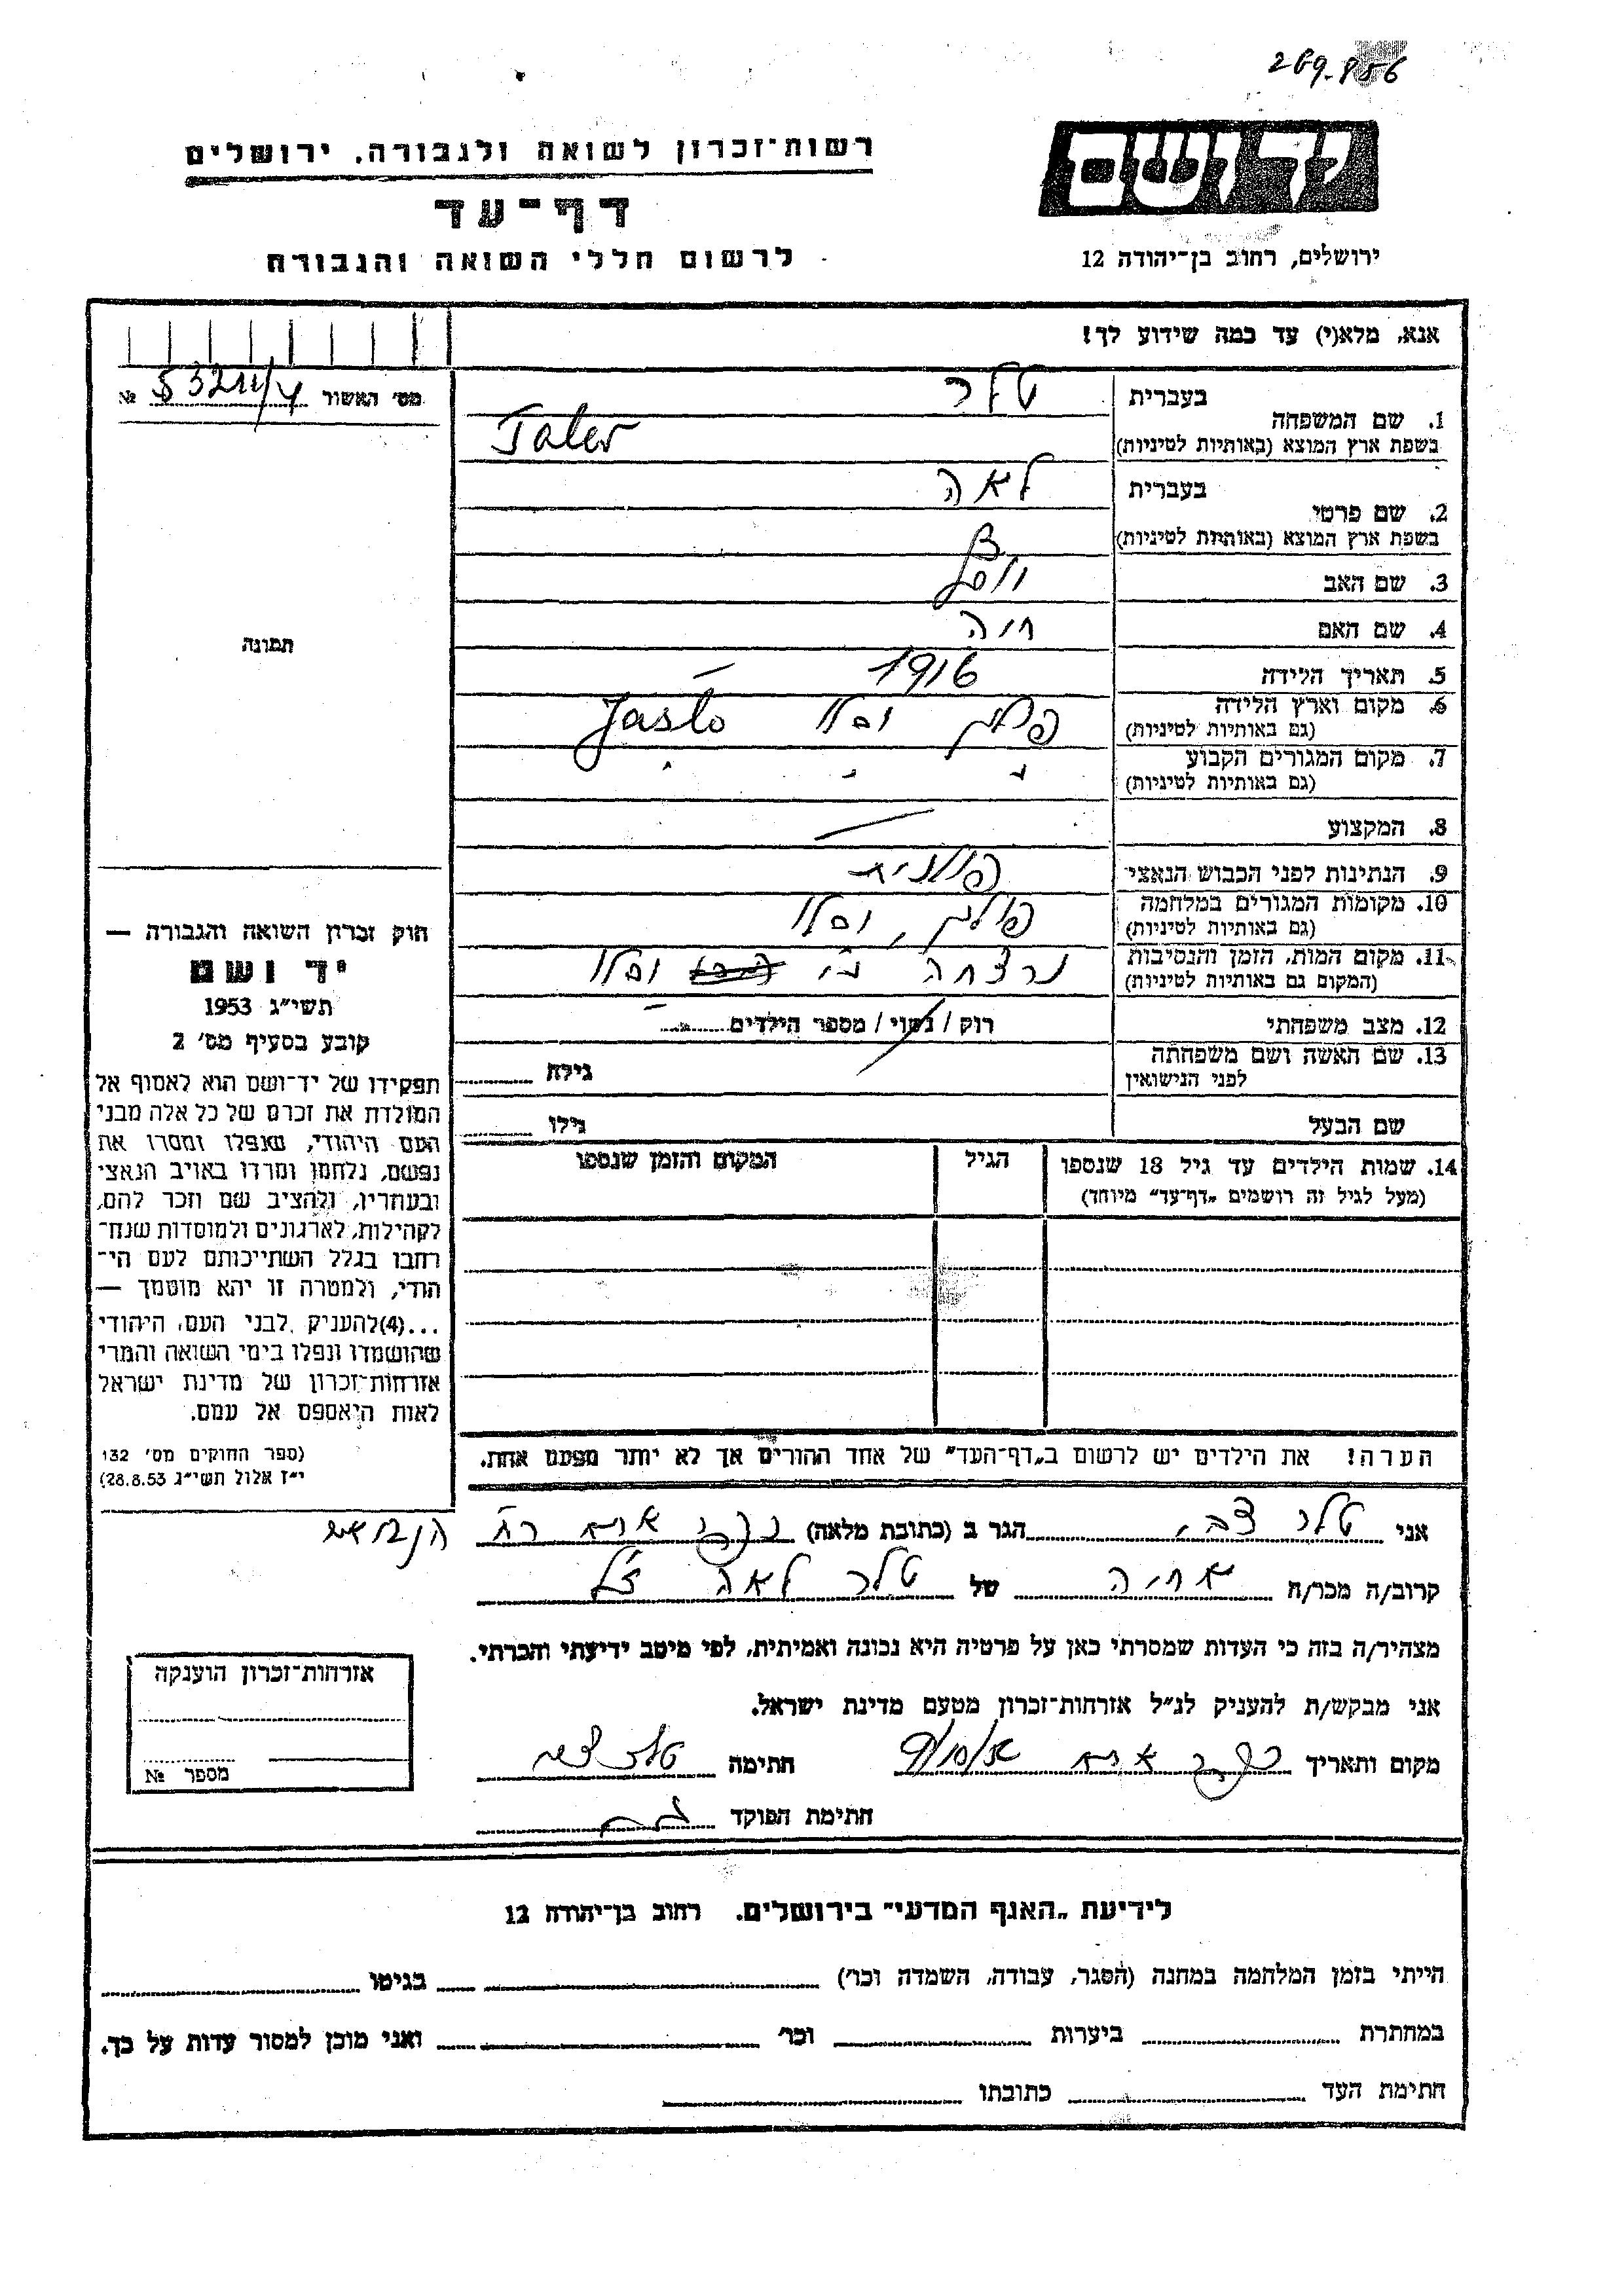 269.856
רשות־זכרון לשואה ולגבורה, ירושלים
יד ושם
דף־עד
ירושלים, רחוב בן־יהודה 12
לרשום חללי השואה והגבורה
אנא, מלא(י) עד כמה שידוע לך!
מס׳ האשור № 53211/4
1. שם המשפחה בעברית טלר
בשפת ארץ המוצא (באותיות לטיניות) Taler
2. שם פרטי בעברית לאה
בשפת ארץ המוצא (באותיות לטיניות)
3. שם האב יוסף
4. שם האם חיה
תמונה
5. תאריך הלידה 1916 —
6. מקום וארץ הלידה (גם באותיות לטיניות) פולין יסלו Jasło
7. מקום המגורים הקבוע (גם באותיות לטיניות) " " "
8. המקצוע —
9. הנתינות לפני הכבוש הנאצי פולנית
10. מקומות המגורים במלחמה (גם באותיות לטיניות) פולין, יסלו
11. מקום המות, הזמן והנסיבות (המקום גם באותיות לטיניות) נרצחה יסלו
12. מצב משפחתי רוק / נשוי / מספר הילדים —
13. שם האשה ושם משפחתה לפני הנישואין גילה
שם הבעל גילו
14. שמות הילדים עד גיל 18 שנספו הגיל המקום והזמן שנספו
(מעל לגיל זה רושמים „דף־עד״ מיוחד)
הערה! את הילדים יש לרשום ב„דף־העד״ של אחד ההורים אך לא יותר מפעם אחת.
חוק זכרון השואה והגבורה —
יד ושם
תשי״ג 1953
קובע בסעיף מס׳ 2
תפקידו של יד־ושם הוא לאסוף אל
המולדת את זכרם של כל אלה מבני
העם היהודי, שנפלו ומסרו את
נפשם, נלחמו ומרדו באויב הנאצי
ובעוזריו, ולהציב שם וזכר להם,
לקהילות, לארגונים ולמוסדות שנח־
רבו בגלל השתייכותם לעם הי־
הודי, ולמטרה זו יהא מוסמך —
...(4) להעניק לבני העם היהודי
שהושמדו ונפלו בימי השואה והמרי
אזרחות־זכרון של מדינת ישראל
לאות היאספם אל עמם.
(ספר החוקים מס׳ 132
י״ז אלול תשי״ג 28.8.53)
אני טלר צבי הגר ב (כתובת מלאה) אתא רח׳
קרוב/ה מכר/ה אחיה של טלר לאה ז״ל
מצהיר/ה בזה כי העדות שמסרתי כאן על פרטיה היא נכונה ואמיתית, לפי מיטב ידיעתי והכרתי.
אני מבקש/ת להעניק לנ״ל אזרחות־זכרון מטעם מדינת ישראל.
מקום ותאריך אתא חתימה טלר צבי
חתימת הפוקד
אזרחות־זכרון הוענקה
מספר №
לידיעת „האגף המדעי״ בירושלים, רחוב בן־יהודה 12
הייתי בזמן המלחמה במחנה (הסגר, עבודה, השמדה וכו׳) בגיטו
במחתרת ביערות וכו׳ ואני מוכן למסור עדות על כך.
חתימת העד כתובתו